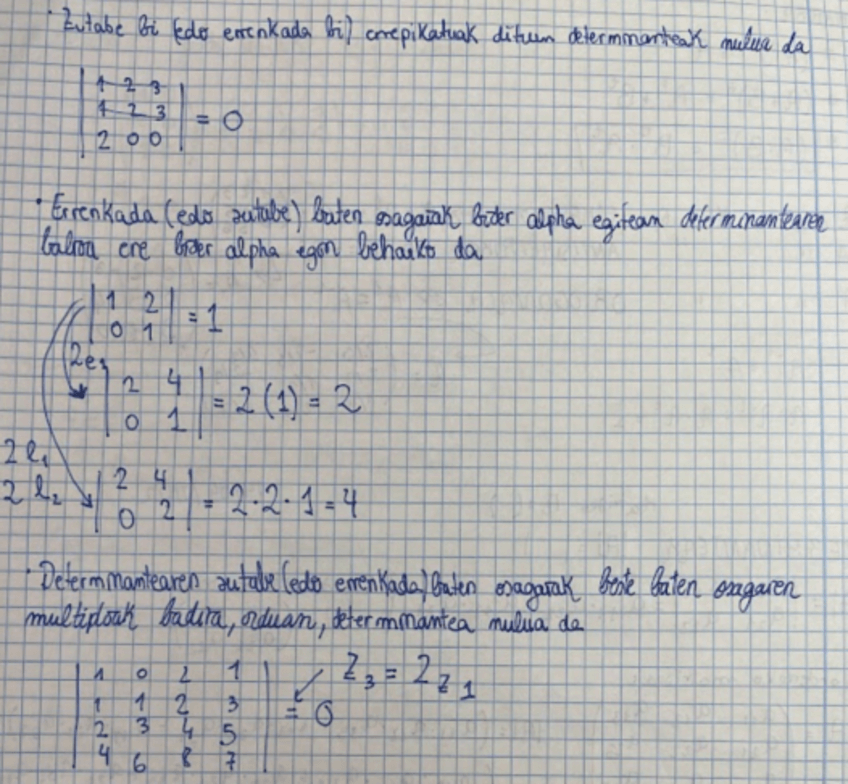 · Zutabe bi (edo errenkada bi) errepikatuak dituen determinanteak nulua da
| 1 2 3 |
| 1 2 3 | = 0
| 2 0 0 |
· Errenkada (edo zutabe) baten osagaiak bider alpha egitean determinantearen
balioa ere bider alpha egon beharko da
| 1 2 |
| 0 1 | = 1
2e₁
| 2 4 |
| 0 1 | = 2 (1) = 2
2 l₁
2 l₂
| 2 4 |
| 0 2 | = 2 · 2 · 1 = 4
· Determinantearen zutabe (edo errenkada) baten osagaiak beste baten osagaien
multiploak badira, orduan, determinantea nulua da
| 1 0 2 1 | Z₃ = 2z1
| 1 1 2 3 | = 0
| 2 3 4 5 |
| 4 6 8 7 |